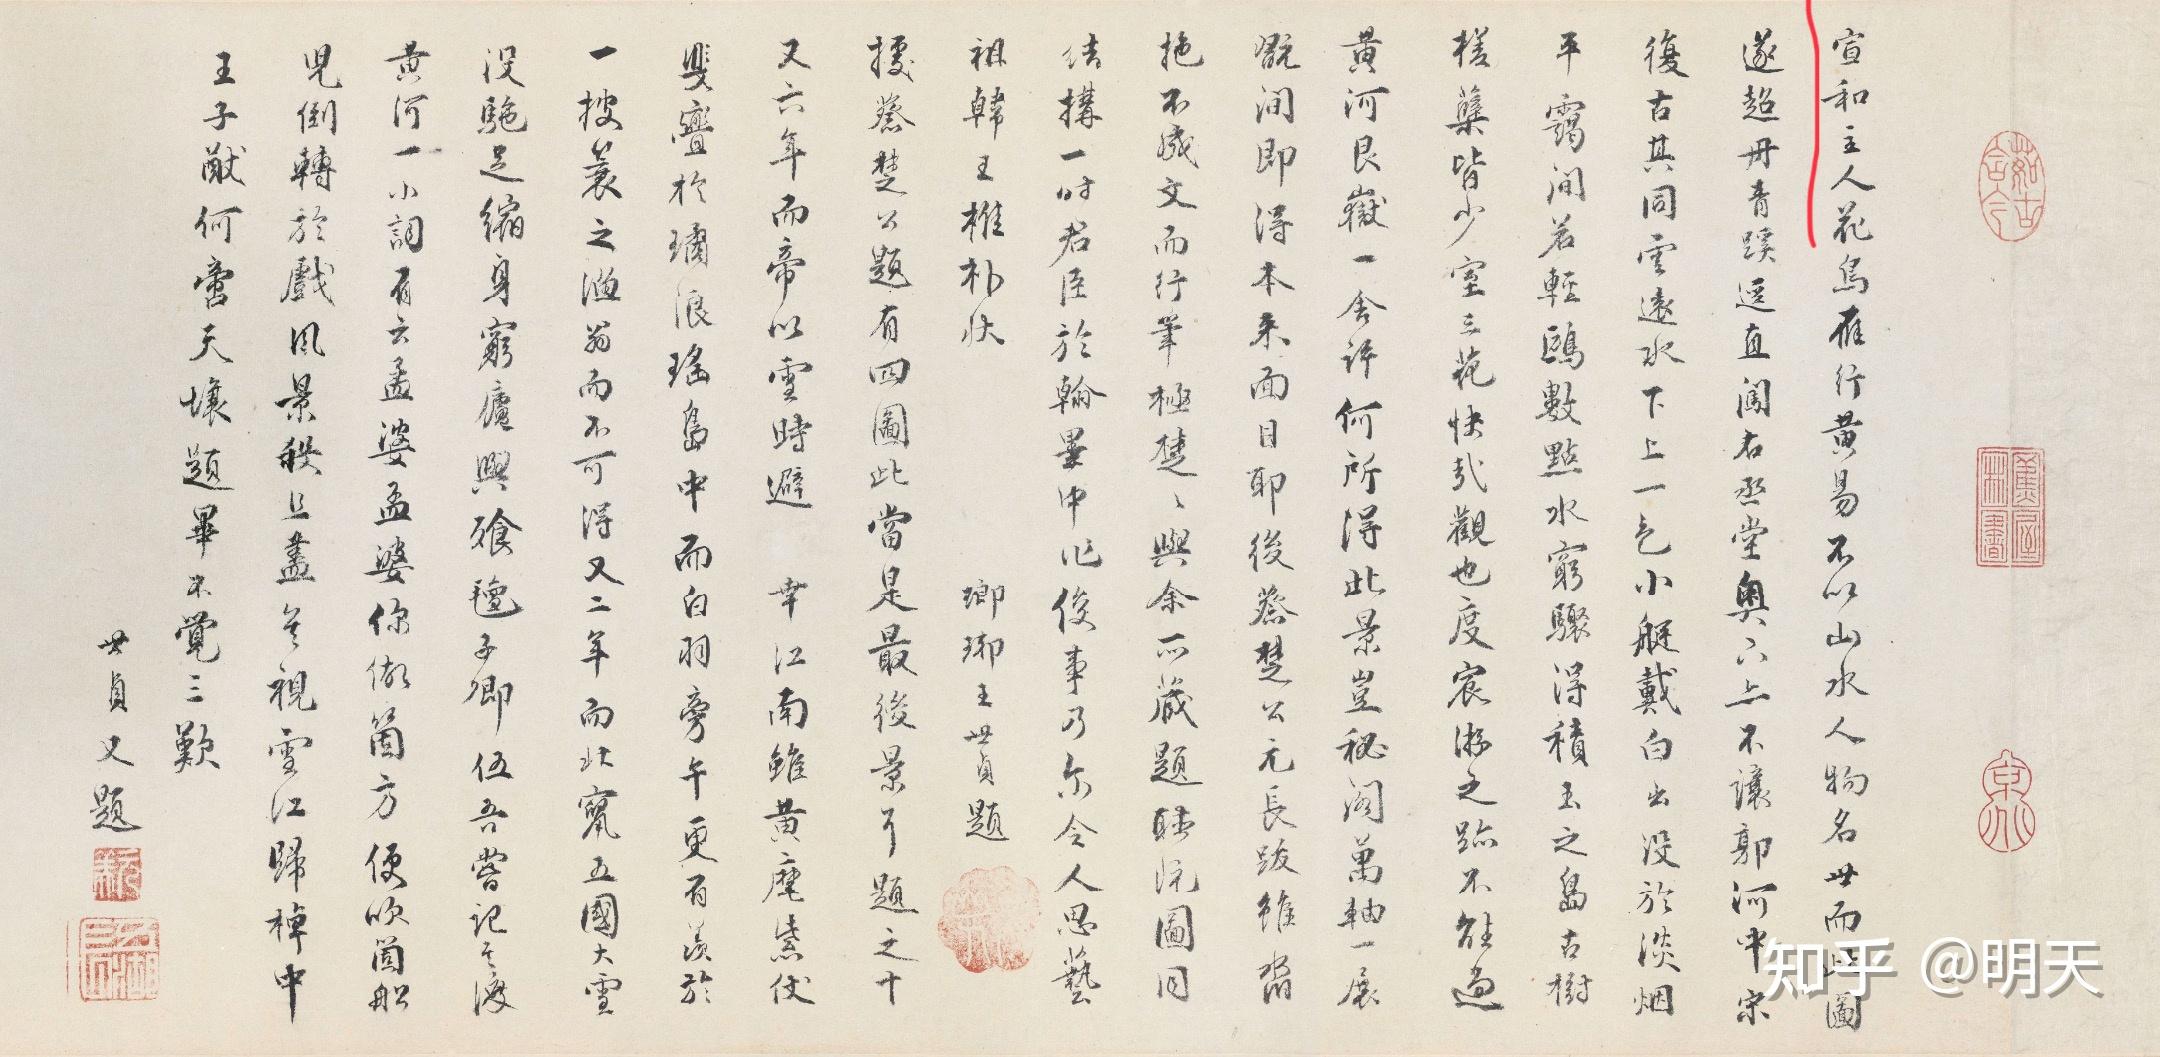 宣和主人花鳥雁行黃易不以山水人物名世而此圖
遂超丹青蹊逕直闖右丞堂奧下上不讓郭河中宋
復古其同雲遠水下上一色小艇戴白出沒於淡烟
平靄間若輕鷗數點水窮驟得積玉之島古樹
槎蘖皆少室三花快哉觀也度宸游之跡不能過
黃河艮嶽一舍許何所得此景豈秘閣萬軸一展
翫間即得本來面目耶後蔡楚公元長跋雖
拖不成文而行筆極楚楚與余所藏題聽阮圖同
結搆一時君臣於翰墨中作俊事乃尔令人思藝
祖韓王椎朴狀 瑯琊王世貞題
據蔡楚公題有四圖此當是最後景耳題之十
又六年而帝以雪時避 幸江南雖黃麾紫仗
斐亹於璚浪瑤島中而白羽旁午更有羨於
一披蓑之漁翁而不可得又二年而北竄五國大雪
沒駝足縮身窮廬與飱氊子卿伍吾嘗記其渡
黃河一小詞有云孟婆孟婆你做箇方便吹箇船
兒倒轉於戲風景殺且盡矣視雪江歸棹中
王子猷何啻天壤題畢不覺三歎
世貞又題
知乎 @明天